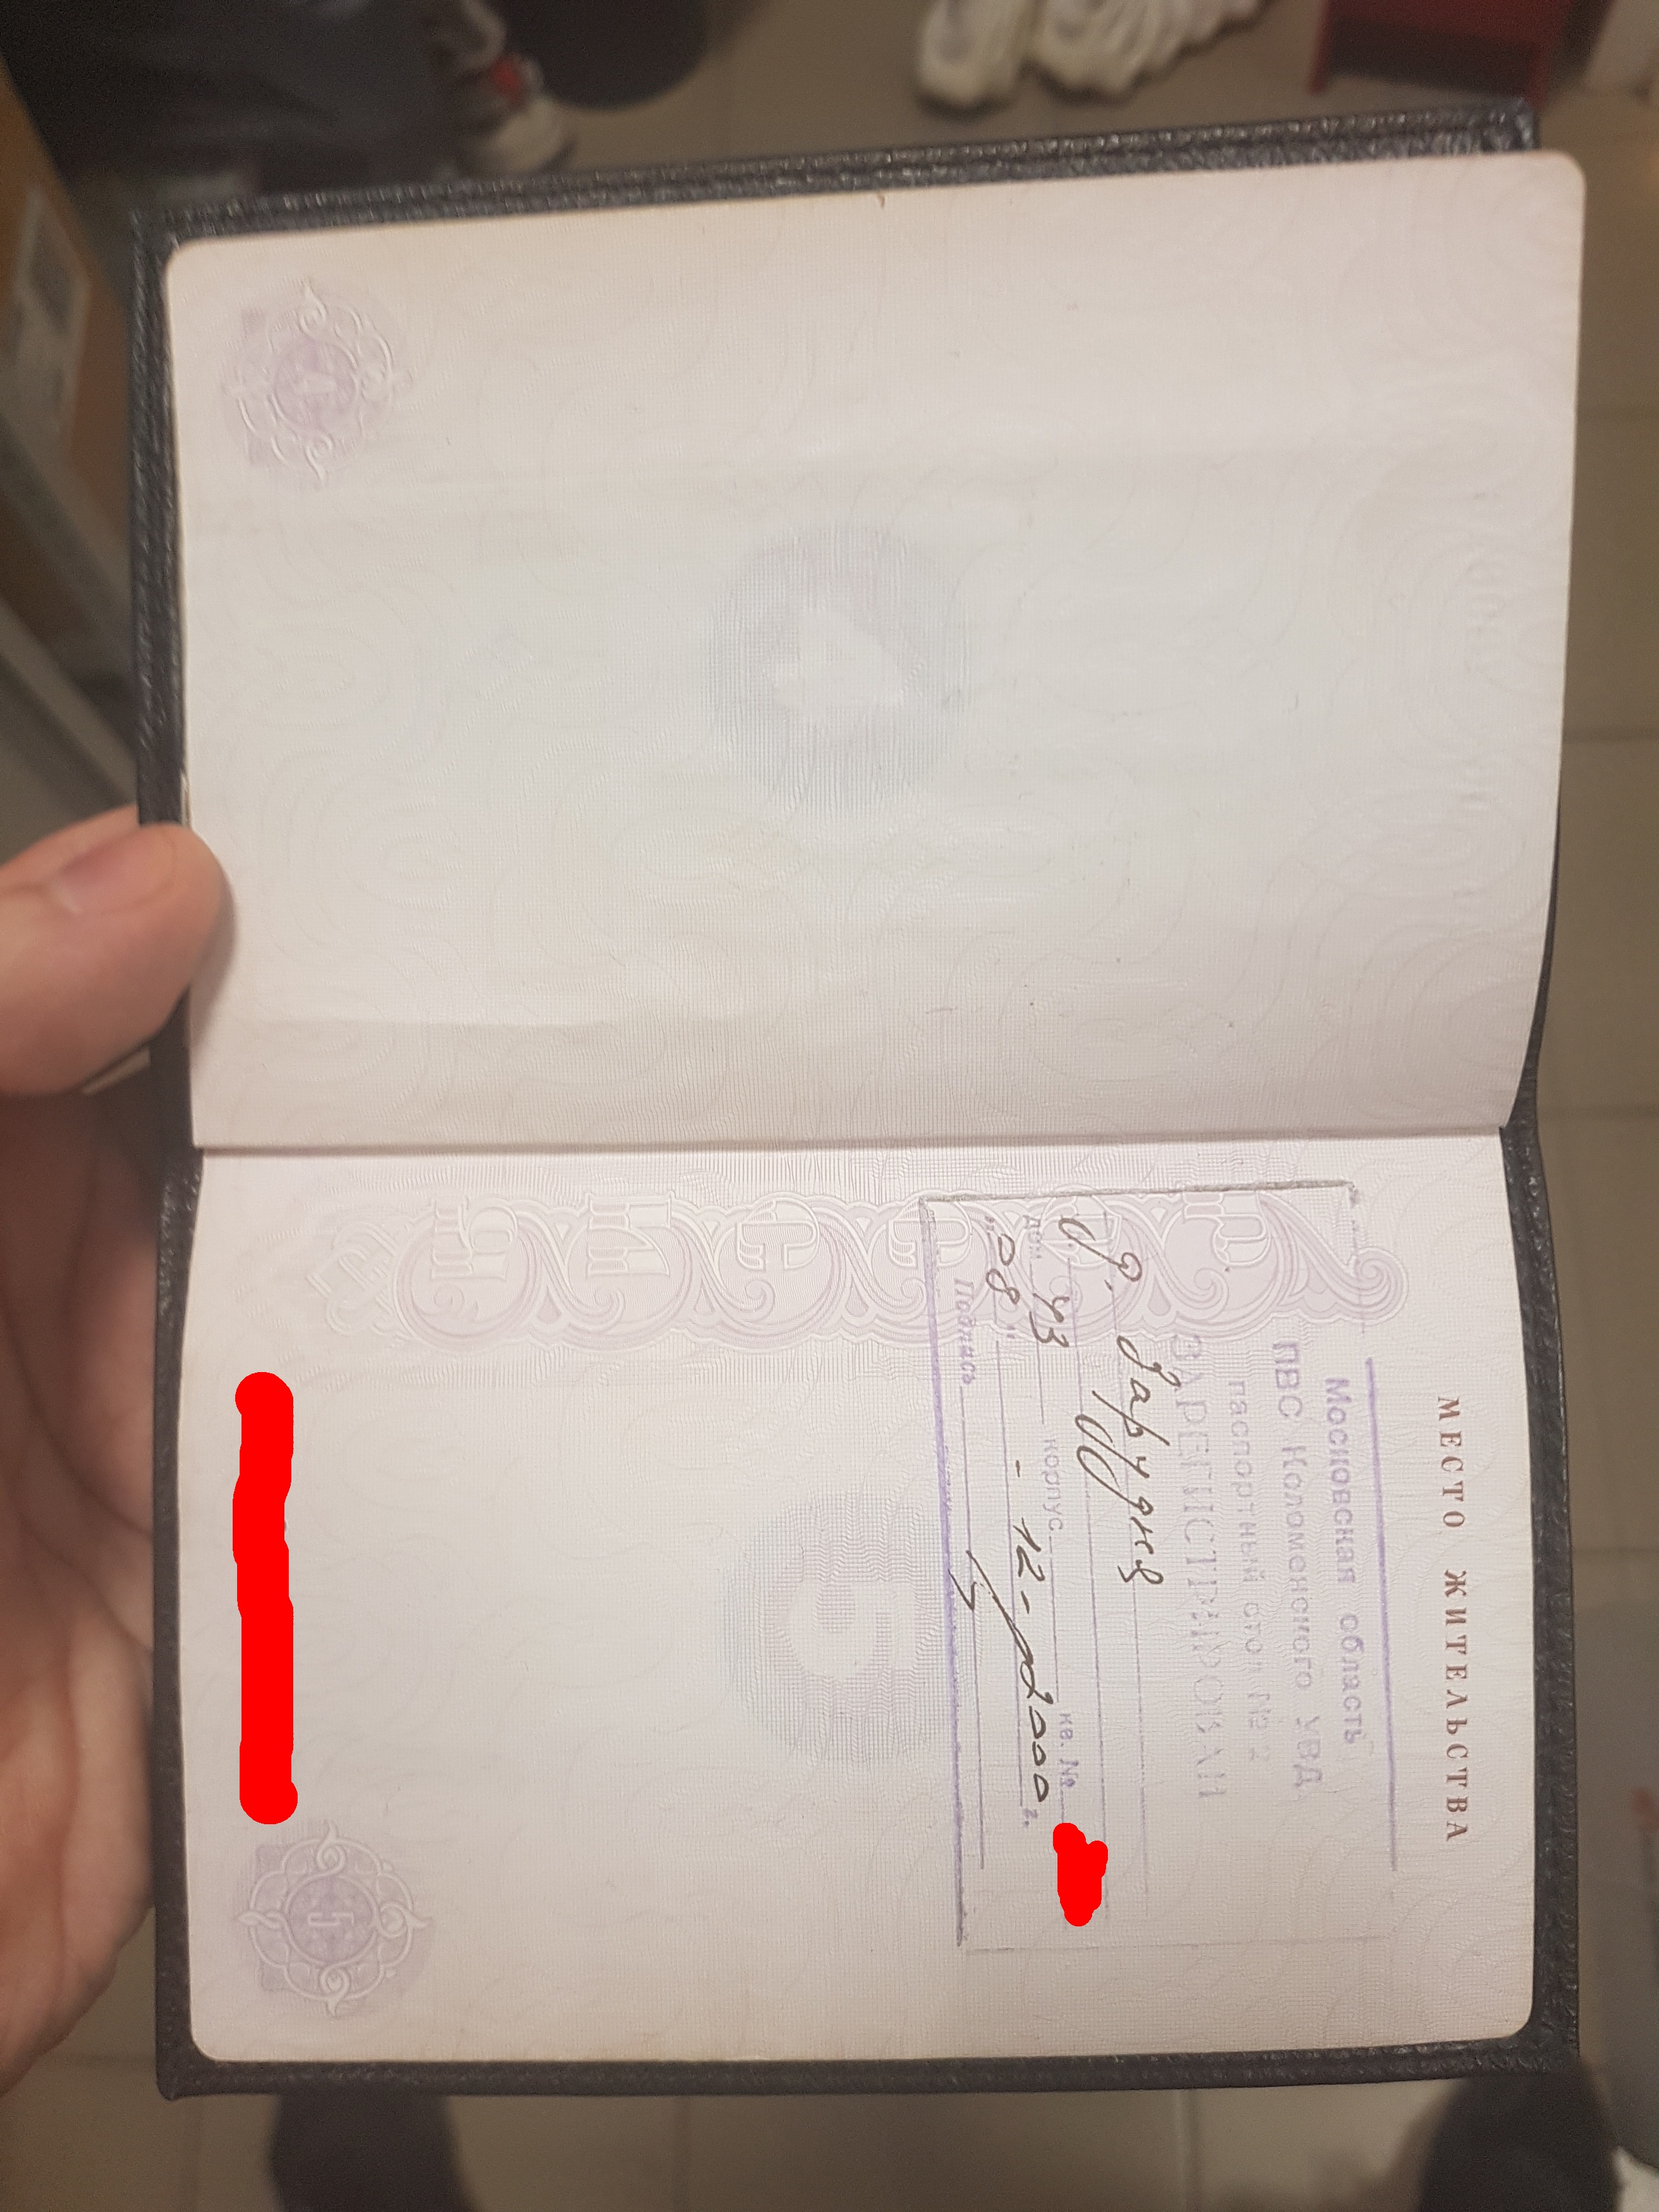 МЕСТО ЖИТЕЛЬСТВА
Московская область
ПВС Коломенского УВД
паспортный стол № 2
ЗАРЕГИСТРИРОВАН
дом 43 корпус кв. №
"08" - 12 - 2000 г.
Подпись
РОССИЯ
5